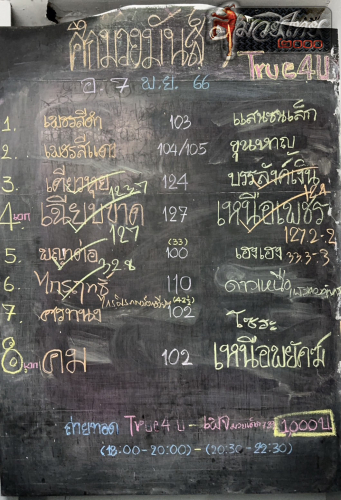 ศึกมวยมันส์
มวยไทย
True4U
อ 7 พ.ย. 66
1. เพชรสีดำ 103 แสนชนเล็ก
2. เพชรสีแดง 104/105 ขุนหาญ
3. เดี่ยวหุย 123.7 124 บรรลังค์เงิน
4 เอก เฉียบขาด 127 127 เหนือเพชร 127.2-2
5. พญาต่อ 33.2.8 (33) 100 เฮงเฮง 33.3-3
6. ไกรฤทธิ์ 110 ดาวเหนือ
7. ศรทนง (42) 102 โชระ
8 เอก คม 102 เหนือพยัคฆ์
ถ่ายทอด True4U - 1,000บ
(18:00-20:00)-(20:30-22:30)